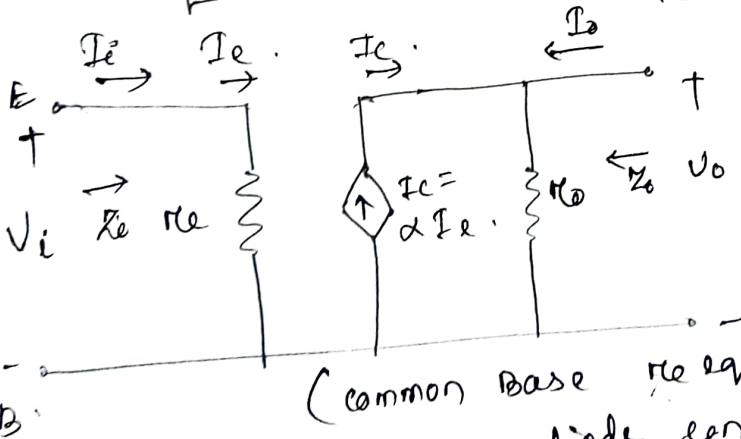 Ii Ie. Ic. Io
E +
+
Vi Zi re Ic = αIe. ro Zo Vo
- -
B.
(Common Base re eq